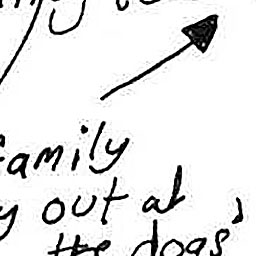 family
y out at
the dogs'